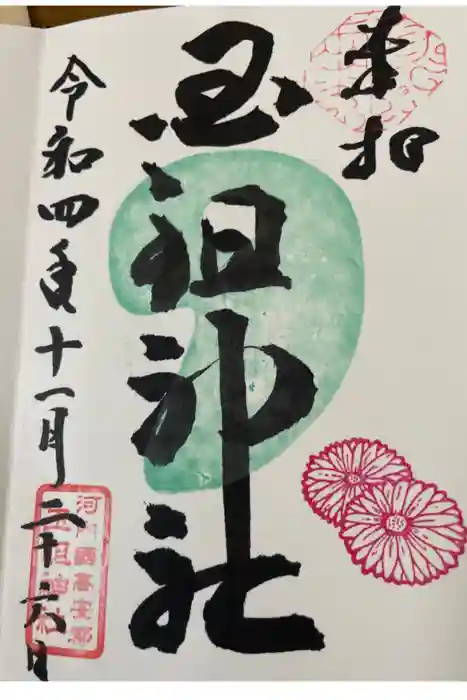 奉拝
玉祖神社
令和四年十一月二十六日
河内國高安郡
玉祖神社